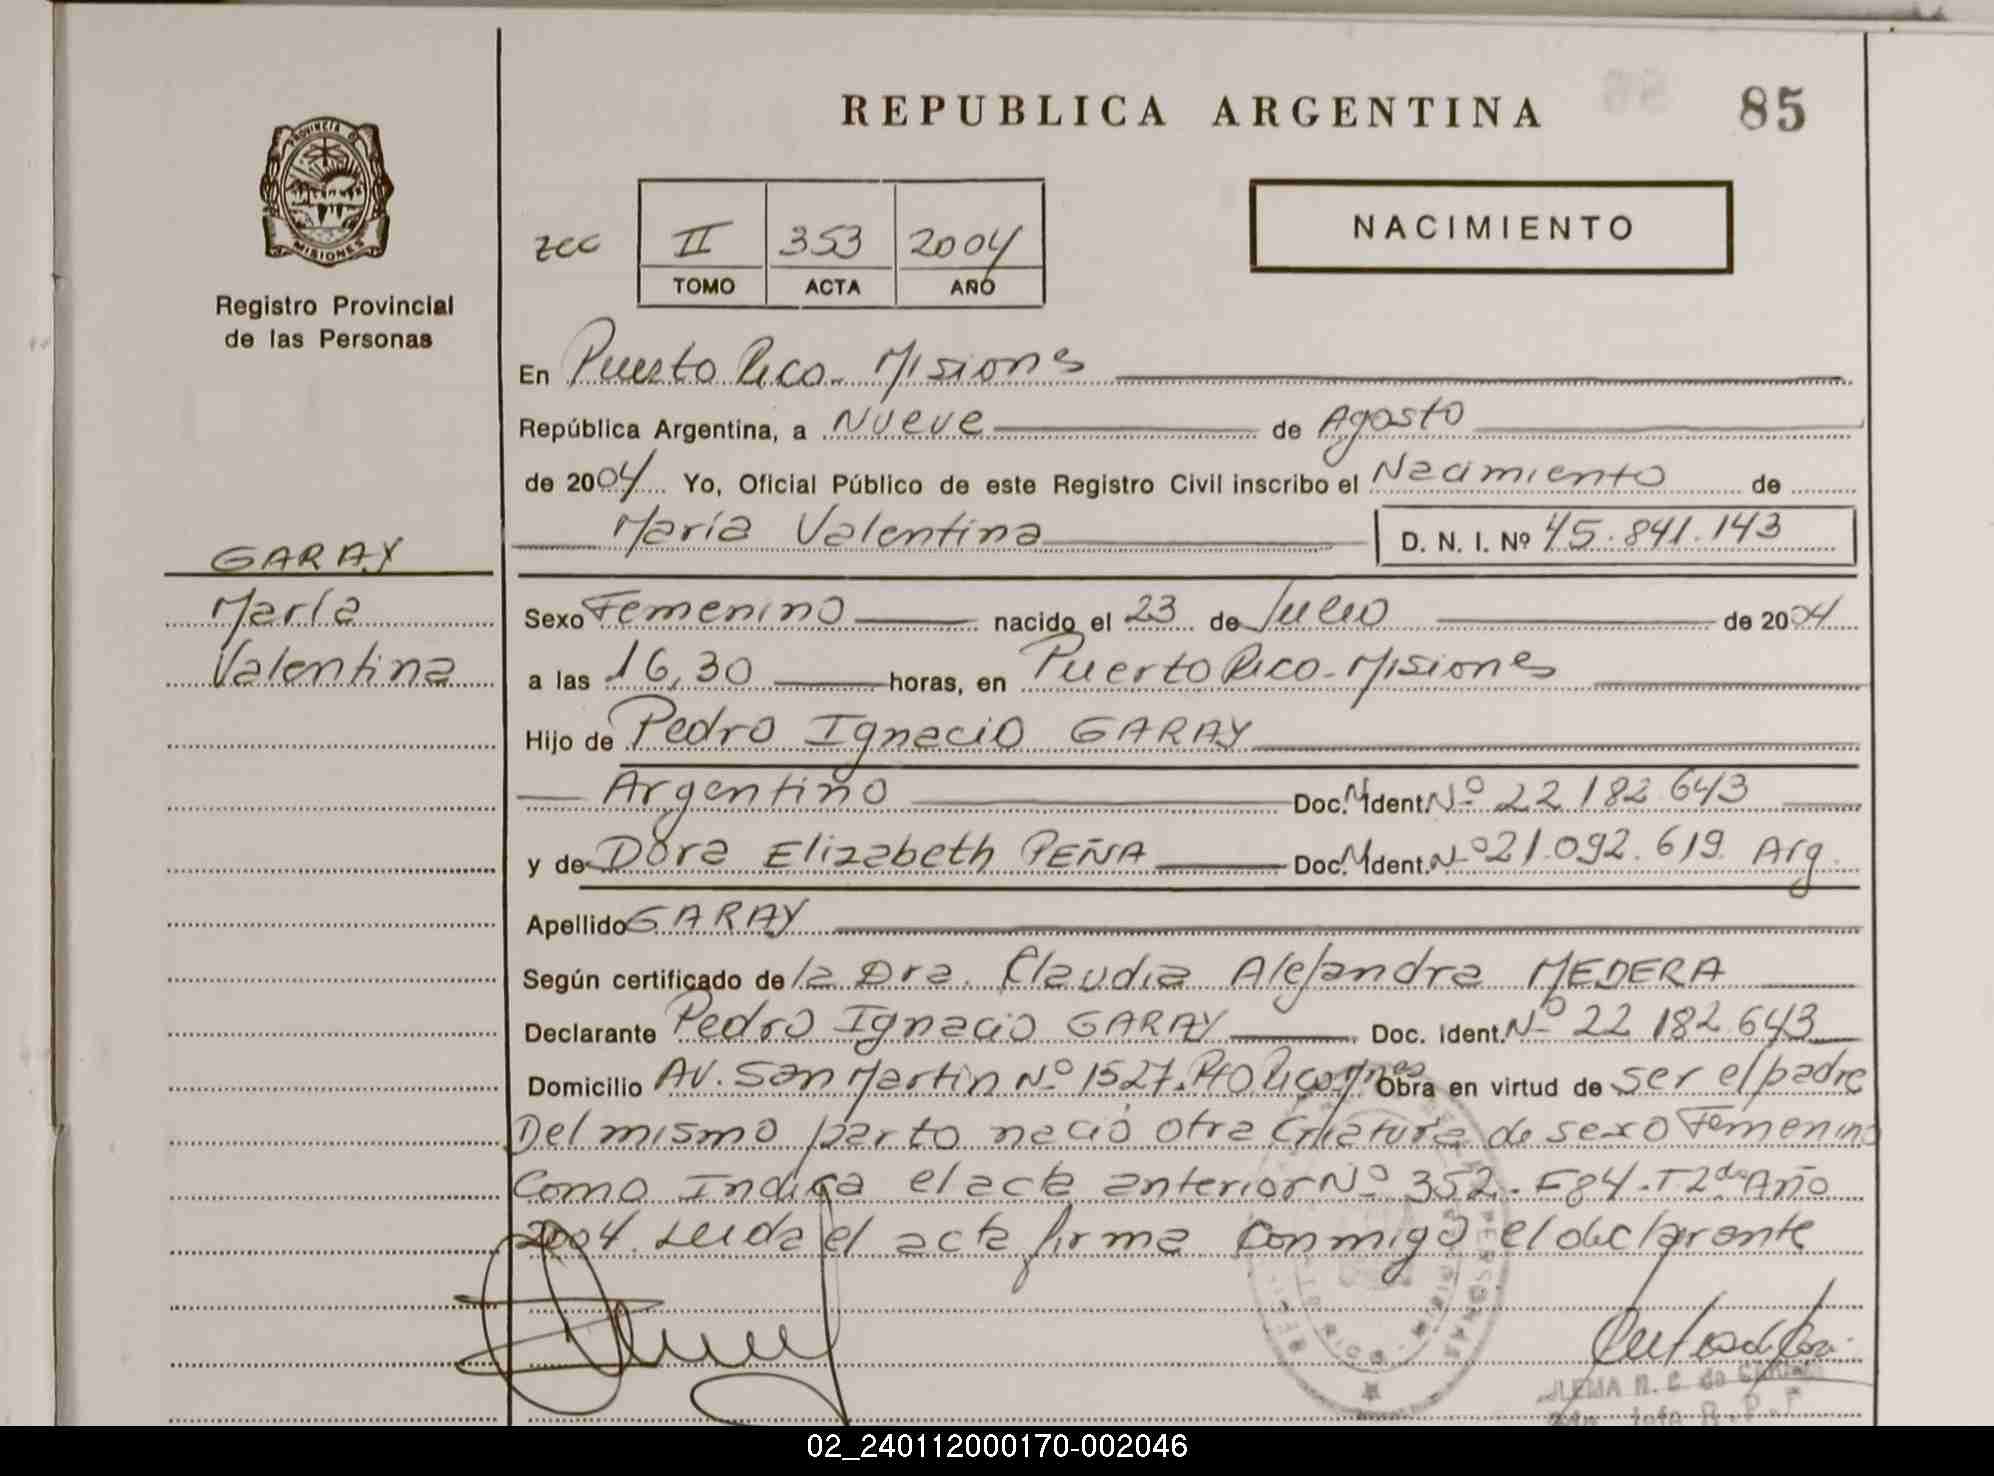 REPUBLICA ARGENTINA
85
PROVINCIA DE
MISIONES
Registro Provincial
de las Personas
zcc
II 353 2004
TOMO ACTA AÑO
NACIMIENTO
En Puerto Rico - Misiones
República Argentina, a Nueve de Agosto
de 2004 Yo, Oficial Público de este Registro Civil inscribo el Nacimiento de
María Valentina D. N. I. Nº 45.841.143
GARAY
María
Valentina
Sexo Femenino nacido el 23 de Julio de 2004
a las 16,30 horas, en Puerto Rico - Misiones
Hijo de Pedro Ignacio GARAY
Argentino Doc. M Ident. Nº 22 182 643
y de Dora Elizabeth PEÑA Doc. M Ident. Nº 21.092.619 Arg.
Apellido GARAY
Según certificado de la Dra. Claudia Alejandra MEDERA
Declarante Pedro Ignacio GARAY Doc. ident. Nº 22 182.643
Domicilio Av. San Martin Nº 1527. Pto Rico Mnes Obra en virtud de ser el padre
Del mismo parto nació otra Criatura de sexo Femenino
Como Indica el acta anterior Nº 352. F84. T2do Año
2004. Leida el acta firma Conmigo el declarante
02_240112000170-002046